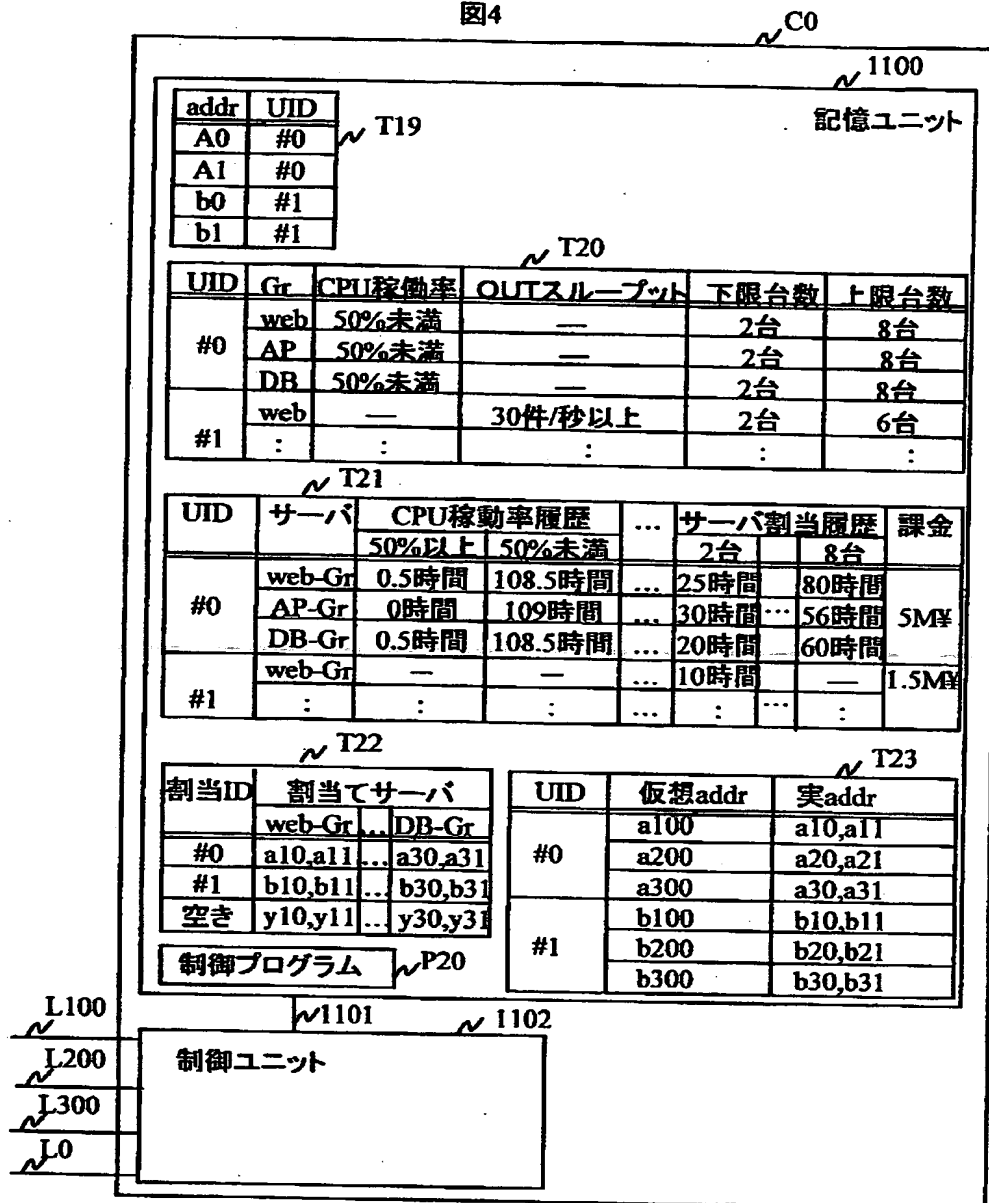 図4
C0
1100
記憶ユニット
addr UID
A0 #0
A1 #0
b0 #1
b1 #1
T19
T20
UID Gr CPU稼働率 OUTスループット 下限台数 上限台数
#0 web 50%未満 — 2台 8台
AP 50%未満 — 2台 8台
DB 50%未満 — 2台 8台
#1 web — 30件/秒以上 2台 6台
: : : : :
T21
UID サーバ CPU稼動率履歴 ... サーバ割当履歴 課金
50%以上 50%未満 2台 8台
#0 web-Gr 0.5時間 108.5時間 ... 25時間 80時間 5M¥
AP-Gr 0時間 109時間 ... 30時間 ... 56時間
DB-Gr 0.5時間 108.5時間 ... 20時間 60時間
#1 web-Gr — — ... 10時間 — 1.5M¥
: : : ... : ... :
T22
割当ID 割当てサーバ
web-Gr ... DB-Gr
#0 a10,a11 ... a30,a31
#1 b10,b11 ... b30,b31
空き y10,y11 ... y30,y31
T23
UID 仮想addr 実addr
#0 a100 a10,a11
a200 a20,a21
a300 a30,a31
#1 b100 b10,b11
b200 b20,b21
b300 b30,b31
制御プログラム P20
1101
1102
制御ユニット
L100
L200
L300
L0